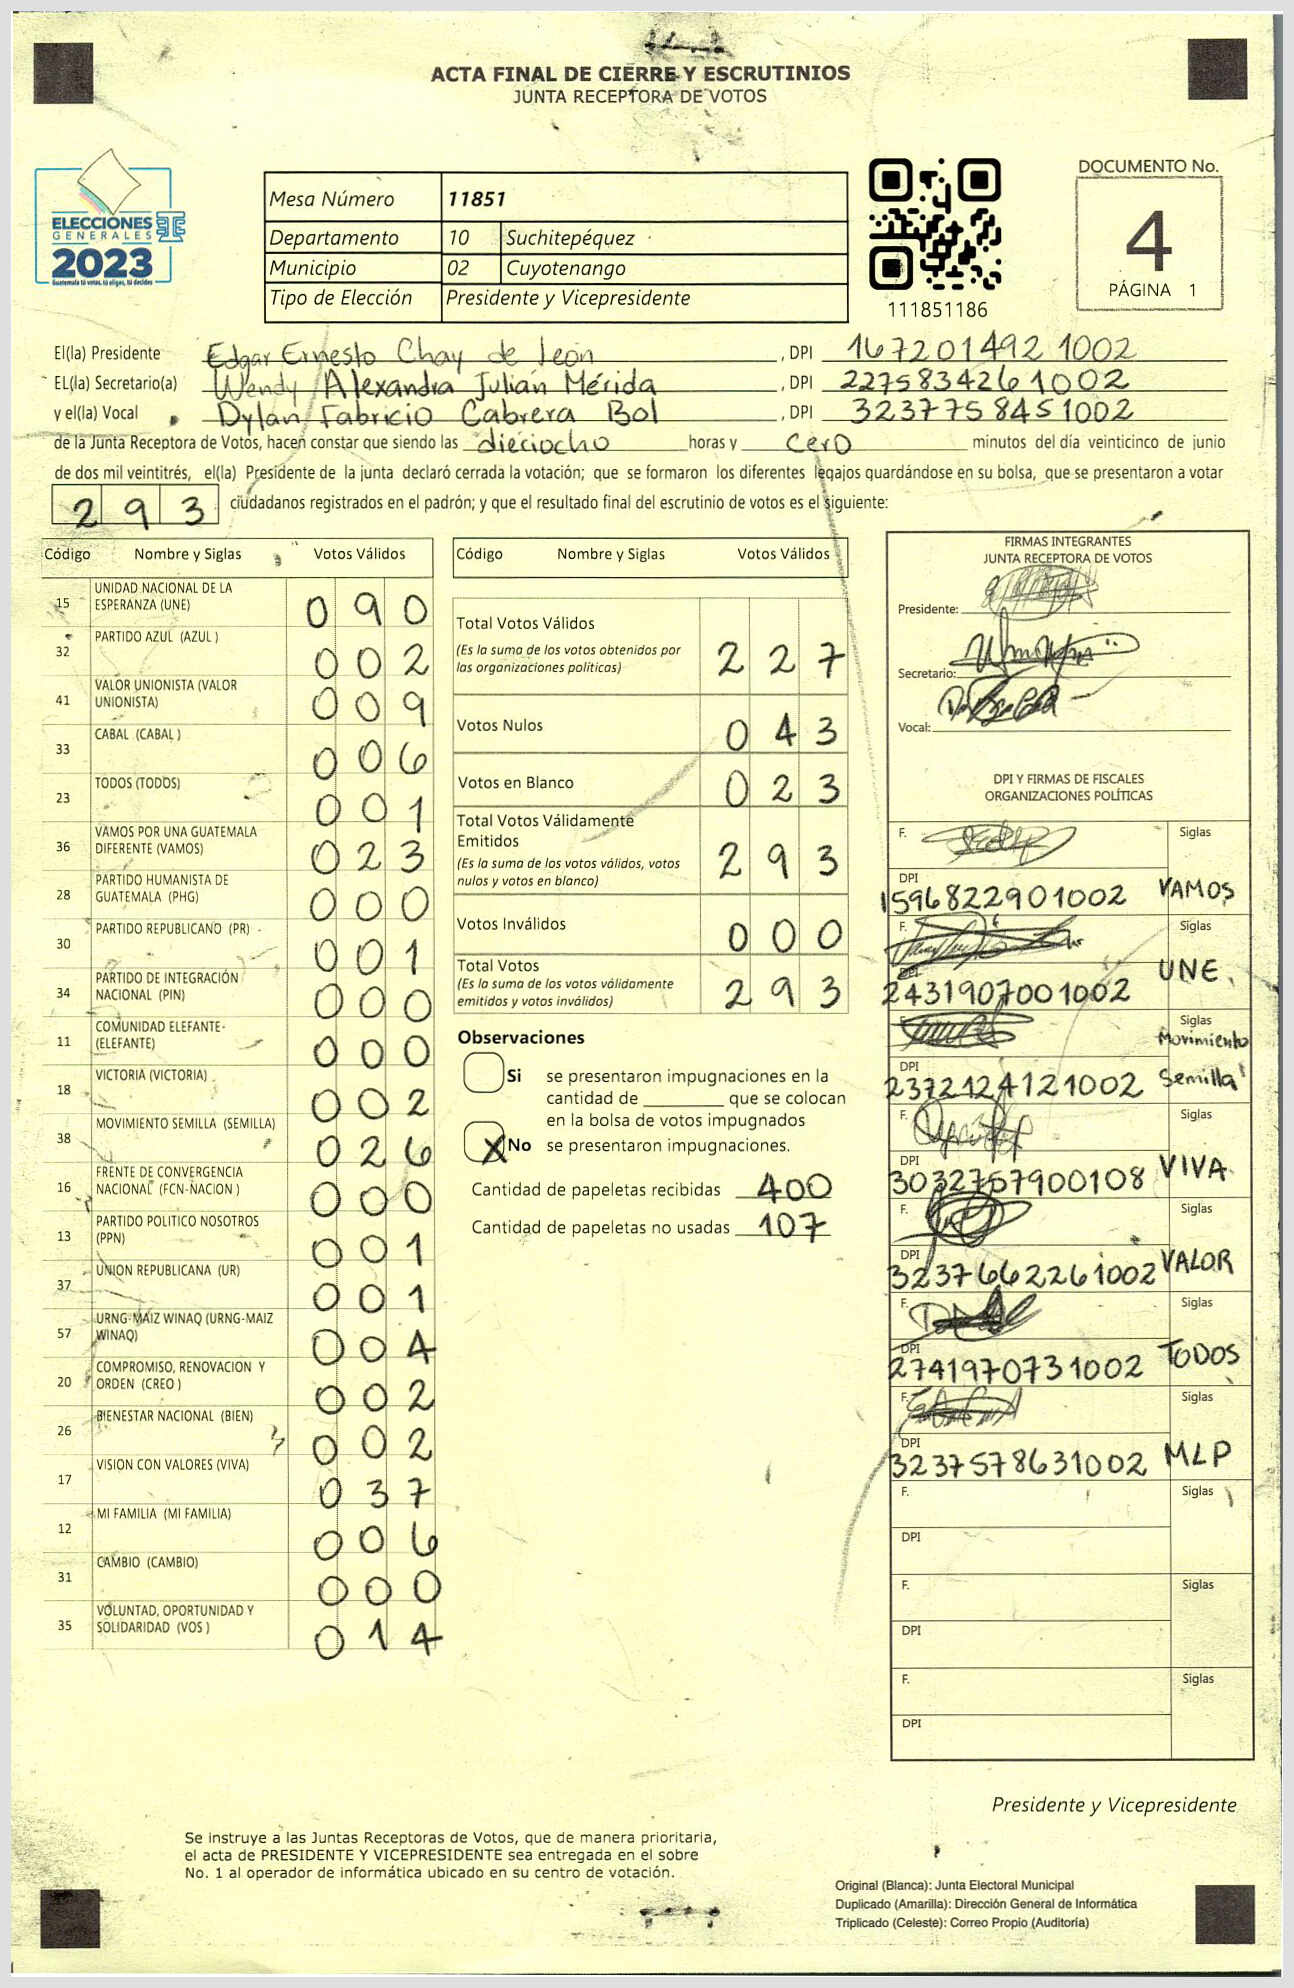 ACTA FINAL DE CIERRE Y ESCRUTINIOS
JUNTA RECEPTORA DE VOTOS
ELECCIONES
GENERALES
2023
Guatemala tú votas, tú eliges, tú decides
Mesa Número 11851
Departamento 10 Suchitepéquez
Municipio 02 Cuyotenango
Tipo de Elección Presidente y Vicepresidente
111851186
DOCUMENTO No.
4
PÁGINA 1
El(la) Presidente Edgar Ernesto Chay de León , DPI 167201492 1002
EL(la) Secretario(a) Wendy Alexandra Julián Mérida , DPI 2275834261002
y el(la) Vocal Dylan Fabricio Cabrera Bol , DPI 3237758451002
de la Junta Receptora de Votos, hacen constar que siendo las dieciocho horas y cero minutos del día veinticinco de junio
de dos mil veintitrés, el(la) Presidente de la junta declaró cerrada la votación; que se formaron los diferentes legajos quardándose en su bolsa, que se presentaron a votar
293 ciudadanos registrados en el padrón; y que el resultado final del escrutinio de votos es el siguiente:
Código Nombre y Siglas Votos Válidos
15 UNIDAD NACIONAL DE LA ESPERANZA (UNE) 090
32 PARTIDO AZUL (AZUL) 002
41 VALOR UNIONISTA (VALOR UNIONISTA) 009
33 CABAL (CABAL) 006
23 TODOS (TODOS) 001
36 VAMOS POR UNA GUATEMALA DIFERENTE (VAMOS) 023
28 PARTIDO HUMANISTA DE GUATEMALA (PHG) 000
30 PARTIDO REPUBLICANO (PR) 001
34 PARTIDO DE INTEGRACIÓN NACIONAL (PIN) 000
11 COMUNIDAD ELEFANTE (ELEFANTE) 000
18 VICTORIA (VICTORIA) 002
38 MOVIMIENTO SEMILLA (SEMILLA) 026
16 FRENTE DE CONVERGENCIA NACIONAL (FCN-NACION) 000
13 PARTIDO POLITICO NOSOTROS (PPN) 001
37 UNION REPUBLICANA (UR) 001
57 URNG-MAIZ WINAQ (URNG-MAIZ WINAQ) 004
20 COMPROMISO, RENOVACION Y ORDEN (CREO) 002
26 BIENESTAR NACIONAL (BIEN) 002
17 VISION CON VALORES (VIVA) 037
12 MI FAMILIA (MI FAMILIA) 006
31 CAMBIO (CAMBIO) 000
35 VOLUNTAD, OPORTUNIDAD Y SOLIDARIDAD (VOS) 014
Código Nombre y Siglas Votos Válidos
Total Votos Válidos
(Es la suma de los votos obtenidos por
las organizaciones políticas) 227
Votos Nulos 043
Votos en Blanco 023
Total Votos Válidamente
Emitidos
(Es la suma de los votos válidos, votos
nulos y votos en blanco) 293
Votos Inválidos 000
Total Votos
(Es la suma de los votos válidamente
emitidos y votos inválidos) 293
Observaciones
Si se presentaron impugnaciones en la
cantidad de ________ que se colocan
en la bolsa de votos impugnados
X No se presentaron impugnaciones.
Cantidad de papeletas recibidas 400
Cantidad de papeletas no usadas 107
FIRMAS INTEGRANTES
JUNTA RECEPTORA DE VOTOS
Presidente:
Secretario:
Vocal:
DPI Y FIRMAS DE FISCALES
ORGANIZACIONES POLÍTICAS
F. Siglas
DPI 1596822901002 VAMOS
F. Siglas
DPI 2431907001002 UNE
F. Siglas
DPI 2372124121002 Movimiento Semilla
F. Siglas
DPI 3032757900108 VIVA
F. Siglas
DPI 3237662261002 VALOR
F. Siglas
DPI 2741970731002 TODOS
F. Siglas
DPI 3237578631002 MLP
F. Siglas
DPI
F. Siglas
DPI
F. Siglas
DPI
Presidente y Vicepresidente
Se instruye a las Juntas Receptoras de Votos, que de manera prioritaria,
el acta de PRESIDENTE Y VICEPRESIDENTE sea entregada en el sobre
No. 1 al operador de informática ubicado en su centro de votación.
Original (Blanca): Junta Electoral Municipal
Duplicado (Amarilla): Dirección General de Informática
Triplicado (Celeste): Correo Propio (Auditoría)